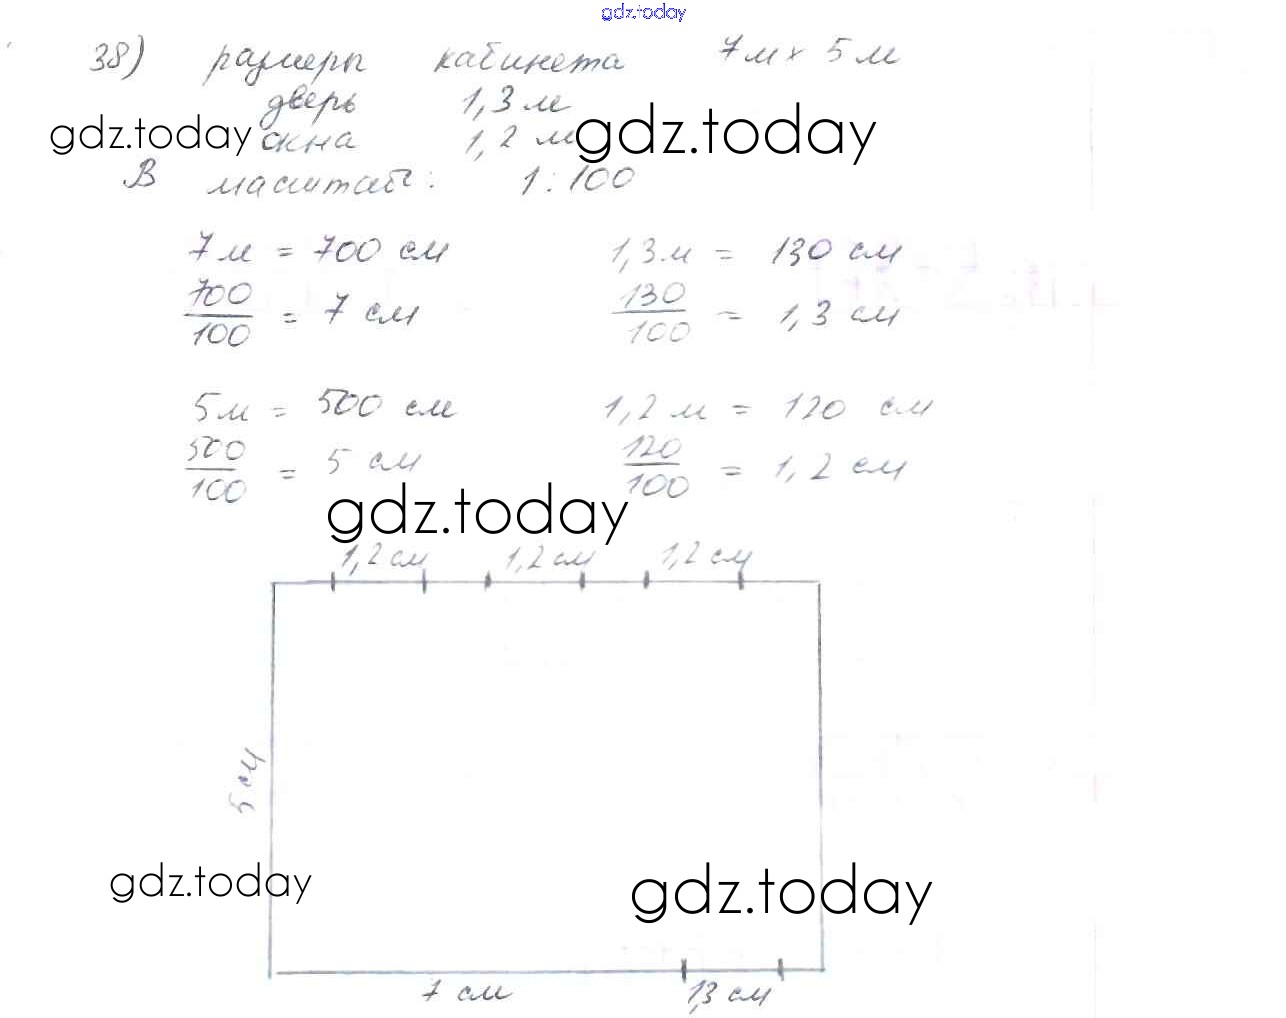 gdz.today
38) размеры кабинета 7м x 5м
дверь 1,3 м
gdz.today окна 1,2 м gdz.today
В масштабе: 1:100
7м = 700 см 1,3м = 130 см
700/100 = 7 см 130/100 = 1,3 см
5м = 500 см 1,2 м = 120 см
500/100 = 5 см 120/100 = 1,2 см
gdz.today
1,2 см 1,2 см 1,2 см
5 см
gdz.today gdz.today
7 см 1,3 см